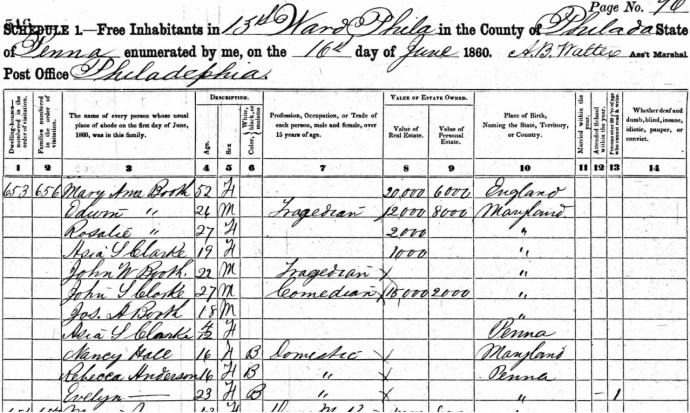 Page No. 90
516
SCHEDULE 1.—Free Inhabitants in 13th Ward Phila in the County of Philada State
of Penna enumerated by me, on the 16th day of June 1860. A. B. Walter Ass't Marshal
Post Office Philadelphia.
Dwelling-houses— numbered in the order of visitation. Families numbered in the order of visitation. The name of every person whose usual place of abode on the first day of June, 1860, was in this family. DESCRIPTION. Age. Sex. Color, White, black, or mulatto Profession, Occupation, or Trade of each person, male and female, over 15 years of age. VALUE OF ESTATE OWNED. Value of Real Estate. Value of Personal Estate. Place of Birth, Naming the State, Territory, or Country. Married within the year. Attended School within the year. Persons over 20 y'rs of age who cannot read & write. Whether deaf and dumb, blind, insane, idiotic, pauper, or convict.
1 2 3 4 5 6 7 8 9 10 11 12 13 14
653 656 Mary Ann Booth 52 F 20,000 6000 England
Edwin " 26 M Tragedian 12,000 8000 Maryland
Rosalie " 27 F 2000 "
Asia S Clarke 19 F 1000 "
John W Booth. 22 M Tragedian "
John S Clarke 27 M Comedian 15,000 2000 "
Jos. A Booth 18 M "
Asia S Clarke 4/12 F Penna
Nancy Hall 16 F B Domestic Maryland
Rebecca Anderson 16 F B " Penna
Evelyn — 23 F B " " 1